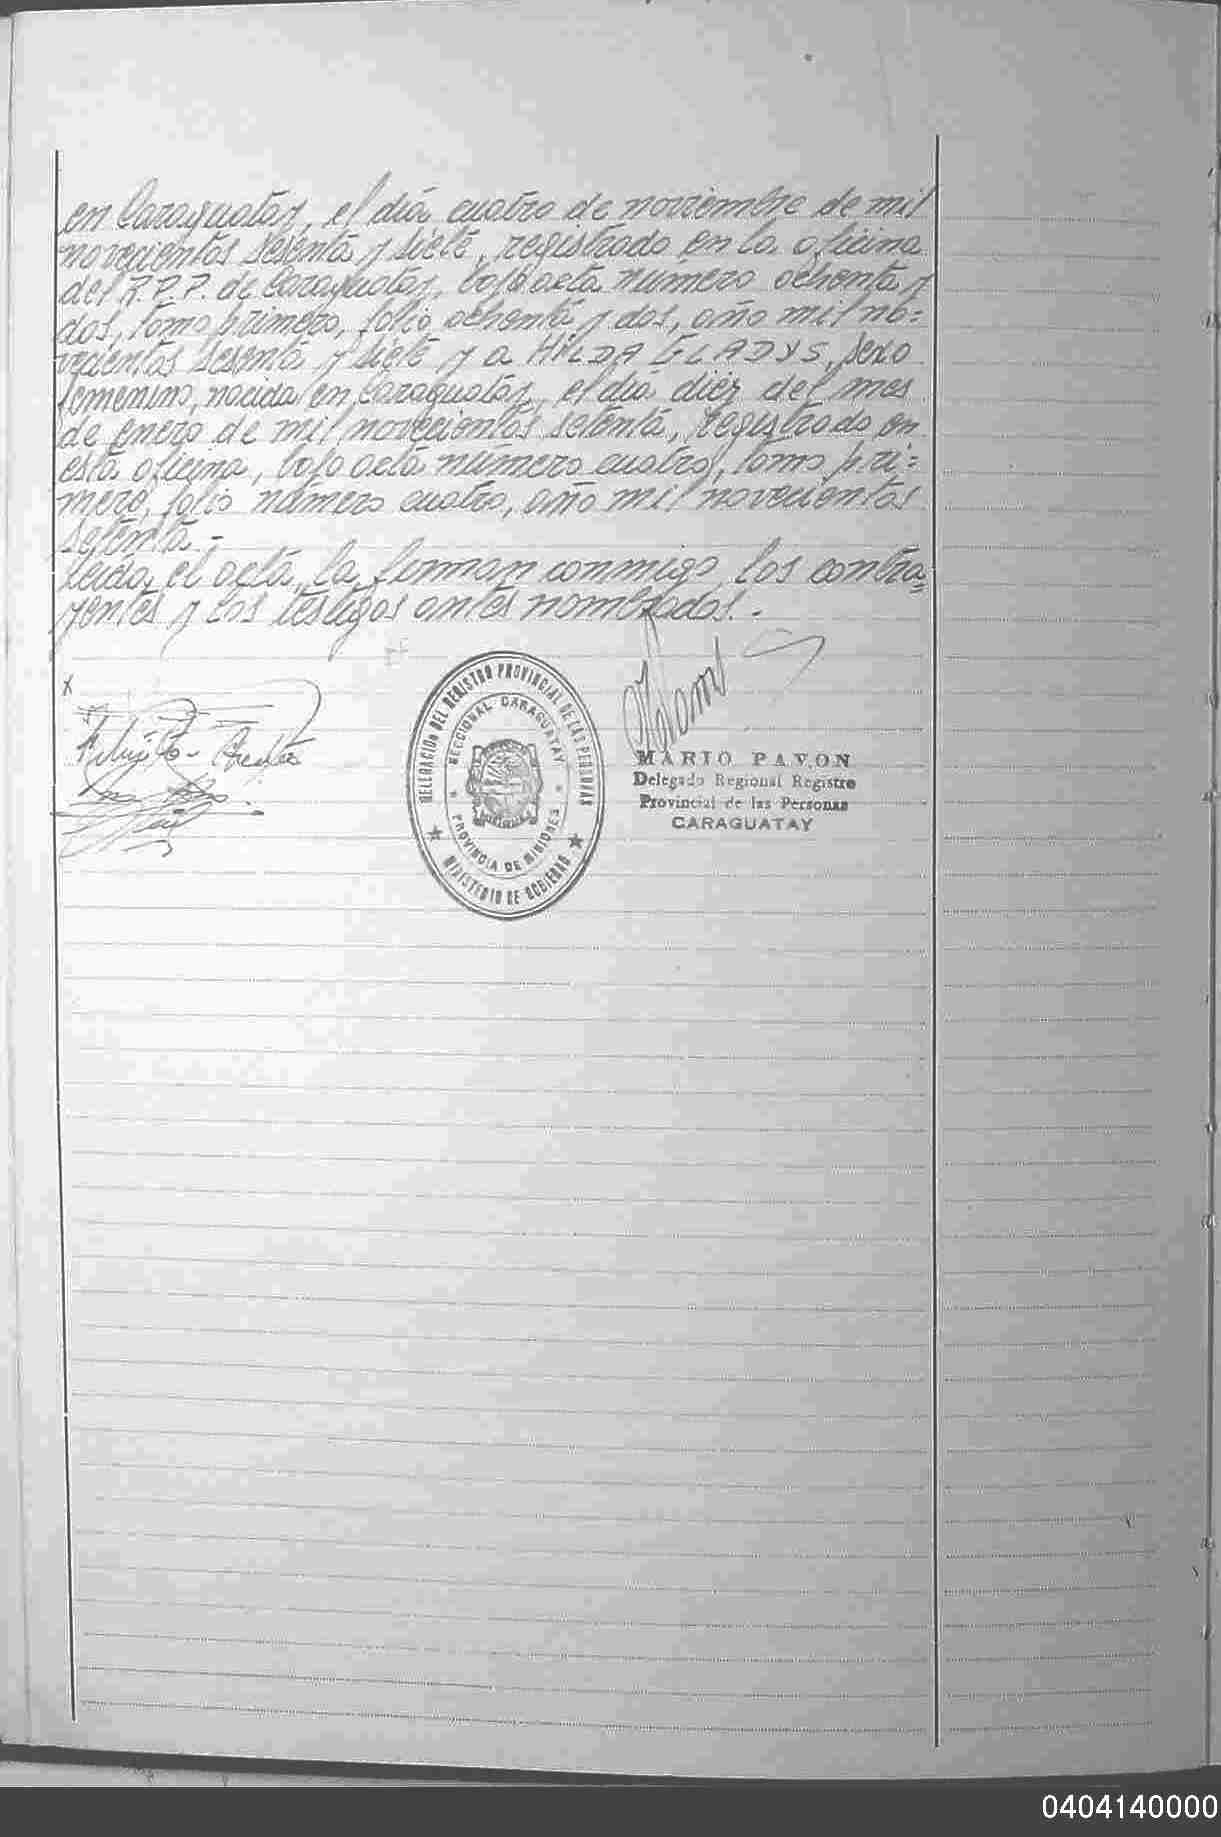 en Caraguatay, el día cuatro de noviembre de mil
novecientos sesenta y siete, registrado en la oficina
del R.P.P. de Caraguatay, bajo acta número ochenta y
dos, tomo primero, folio ochenta y dos, año mil no=
vecientos sesenta y siete y a HILDA GLADYS, sexo
femenino, nacida en Caraguatay, el día diez del mes
de enero de mil novecientos setenta, registrado en
esta oficina, bajo acta número cuatro, tomo pri=
mero, folio número cuatro, año mil novecientos
setenta.-
Leida el acta, la firman conmigo los contra=
yentes y los testigos antes nombrados.-
x
DELEGACION DEL REGISTRO PROVINCIAL DE LAS PERSONAS
SECCIONAL CARAGUATAY
PROVINCIA DE MISIONES
MINISTERIO DE GOBIERNO
MARIO PAVON
Delegado Regional Registro
Provincial de las Personas
CARAGUATAY
0404140000